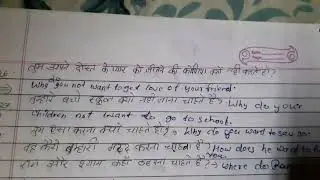 तुम अपने दोस्त के प्यार को जीतने की कोशिश क्यों नहीं करते हो?
Why do you not want to get love of your friend.
तुम्हारे बच्चे स्कूल क्यों नहीं जाना चाहते हैं? Why do your
children not want to go to school.
तुम ऐसा करना क्यों चाहते हो? Why do you want to
वह कैसे तुम्हारी मदद करना चाहता है? How does he want to
राम और श्याम कहाँ ठहरना चाहते हैं? where do Ram